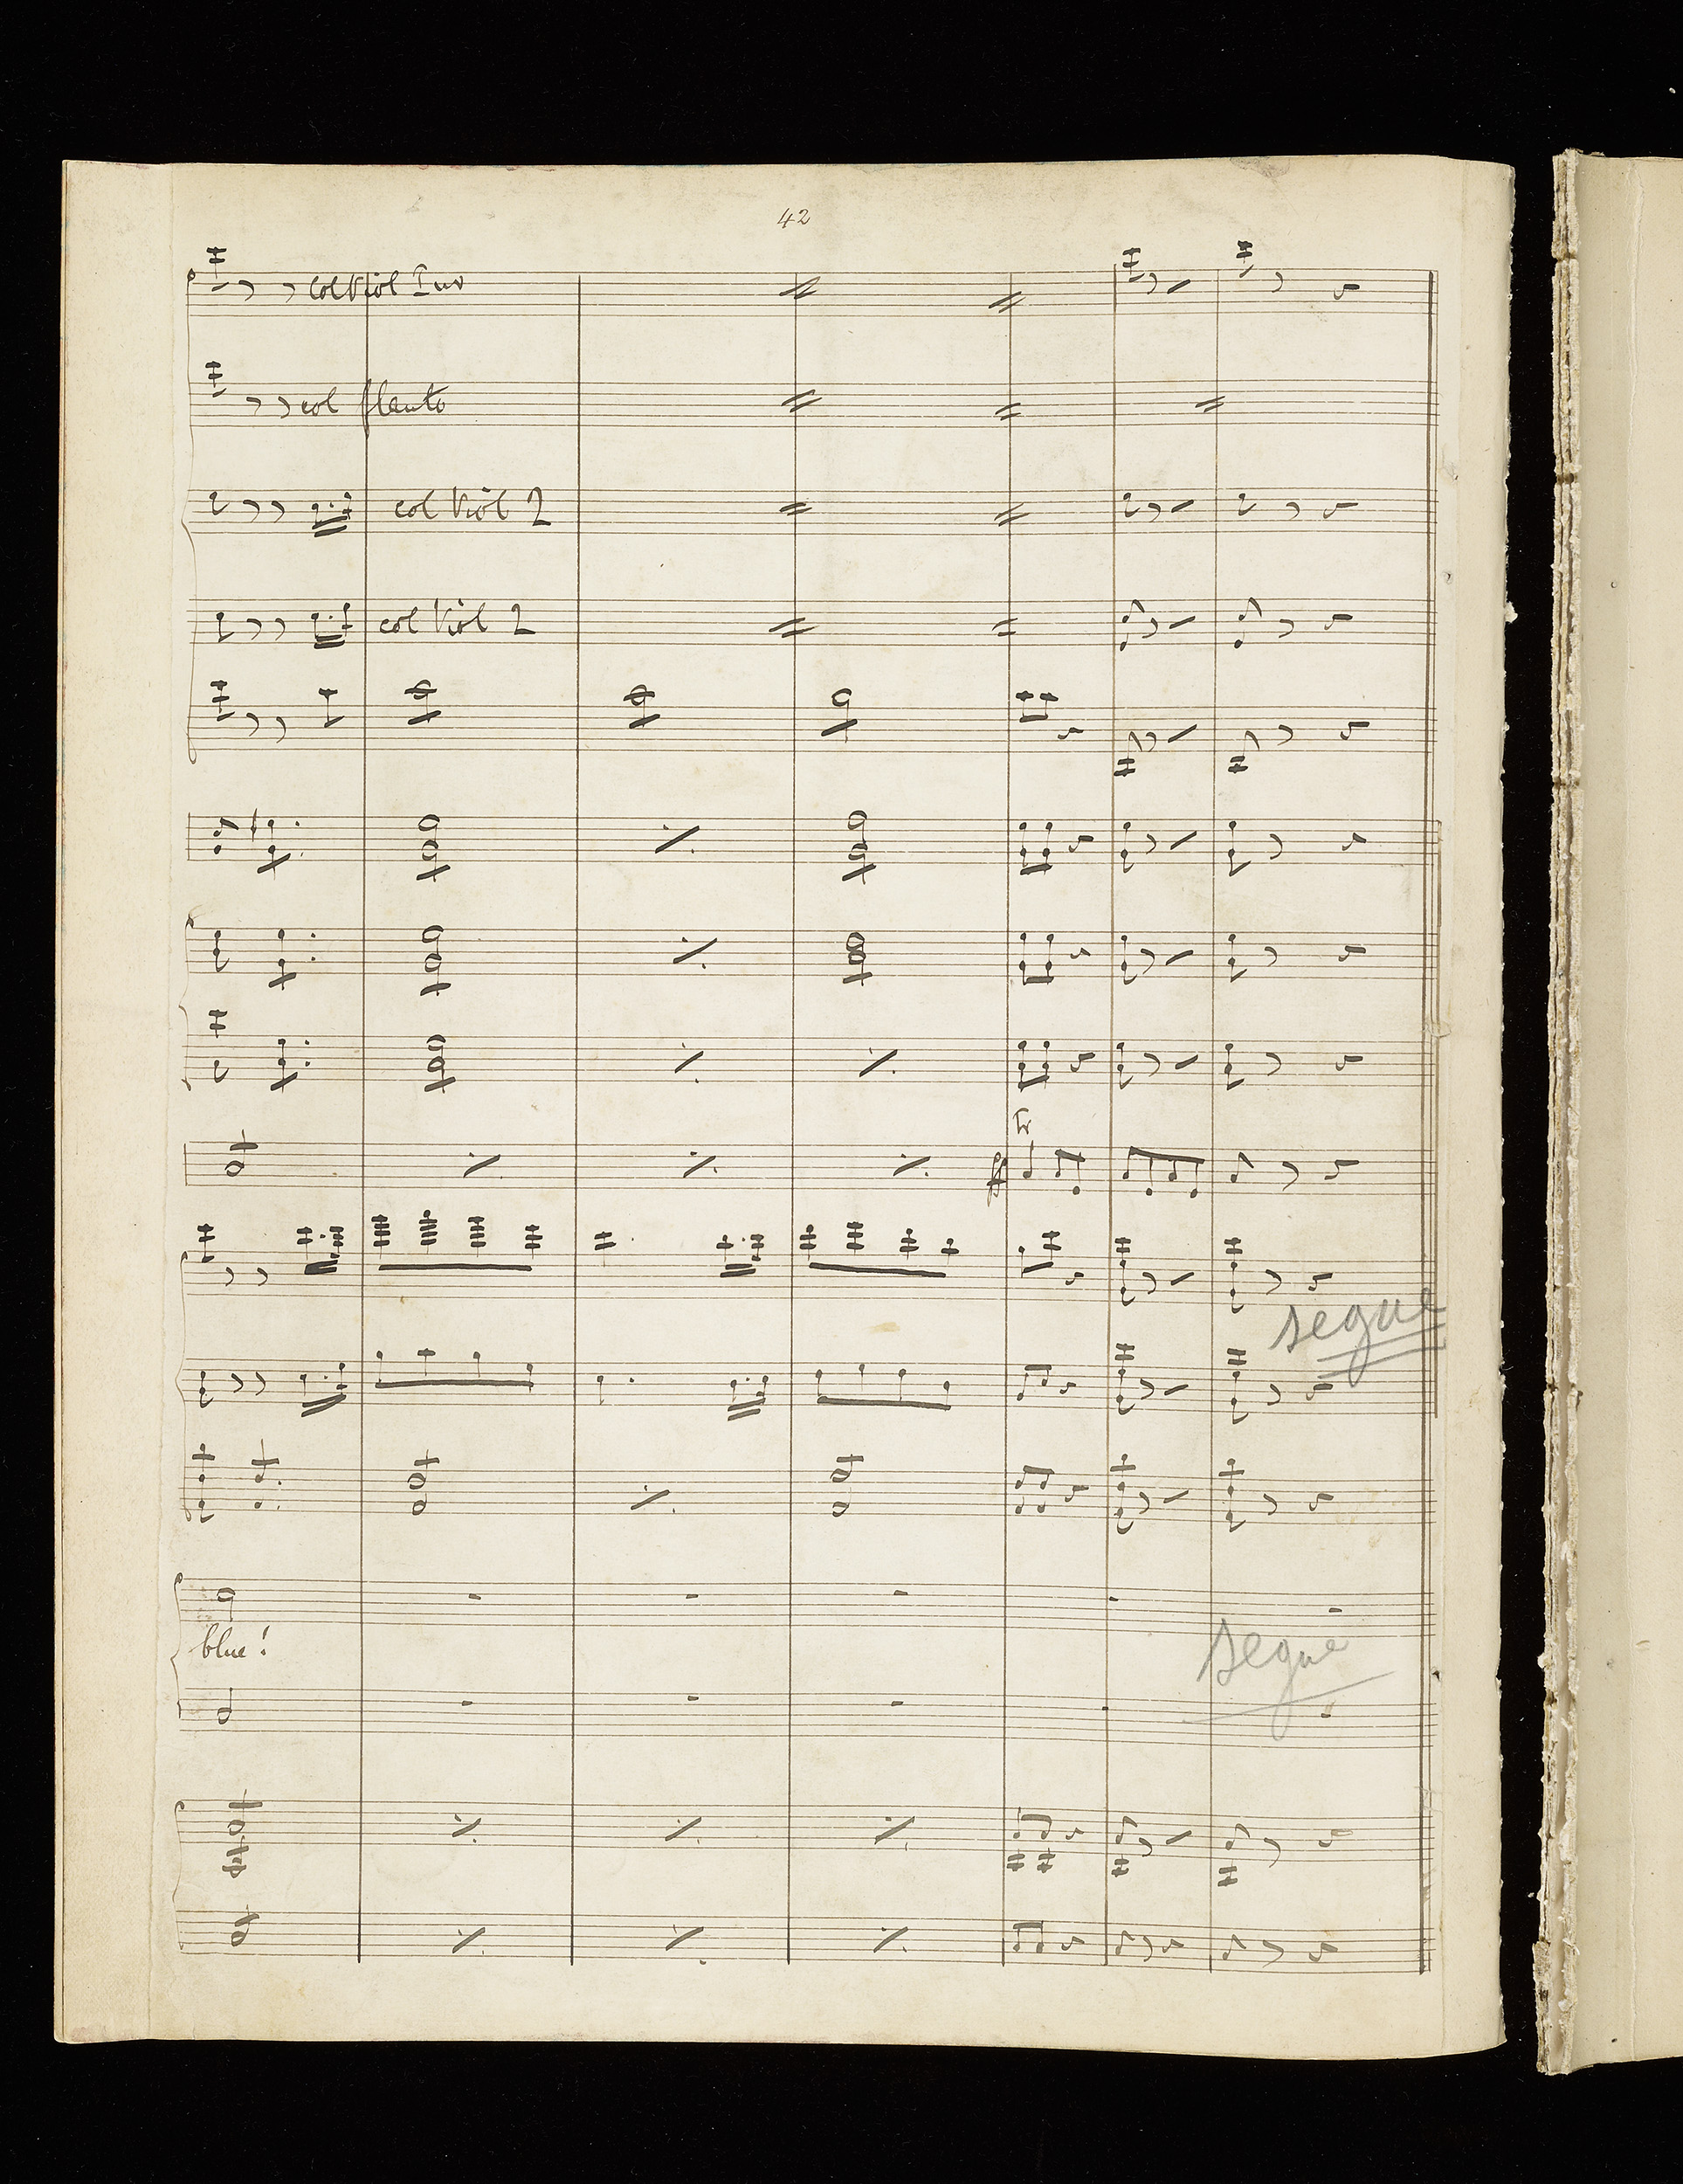 42
col Viol Imo
col flauto
col Viol 2
col Viol 2
tr
ff
segue
blue!
segue